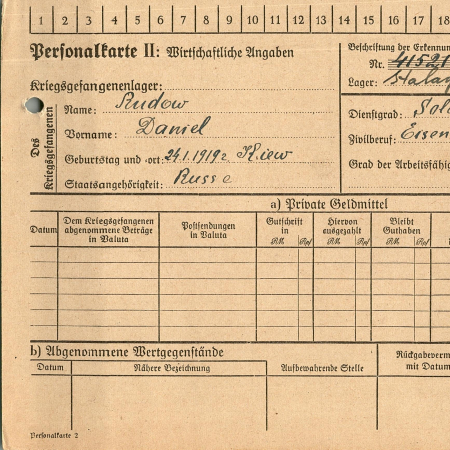 1 2 3 4 5 6 7 8 9 10 11 12 13 14 15 16 17 18
Personalkarte II: Wirtschaftliche Angaben
Beschriftung der Erkennun
Nr. 41521
Lager: Stalag
Kriegsgefangenenlager:
Des Kriegsgefangenen
Name: Rudow
Vorname: Daniel
Geburtstag und -ort: 24.1.1919 Kiew
Staatsangehörigkeit: Russe
Dienstgrad: Sol
Zivilberuf: Eisen
Grad der Arbeitsfähig
a) Private Geldmittel
Datum
Dem Kriegsgefangenen abgenommene Beträge in Valuta
Postsendungen in Valuta
Gutschrift in
RM Rpf
Hiervon ausgezahlt
RM Rpf
Bleibt Guthaben
RM Rpf
b) Abgenommene Wertgegenstände
Datum
Nähere Bezeichnung
Aufbewahrende Stelle
Rückgabeverm
mit Datum
Personalkarte 2